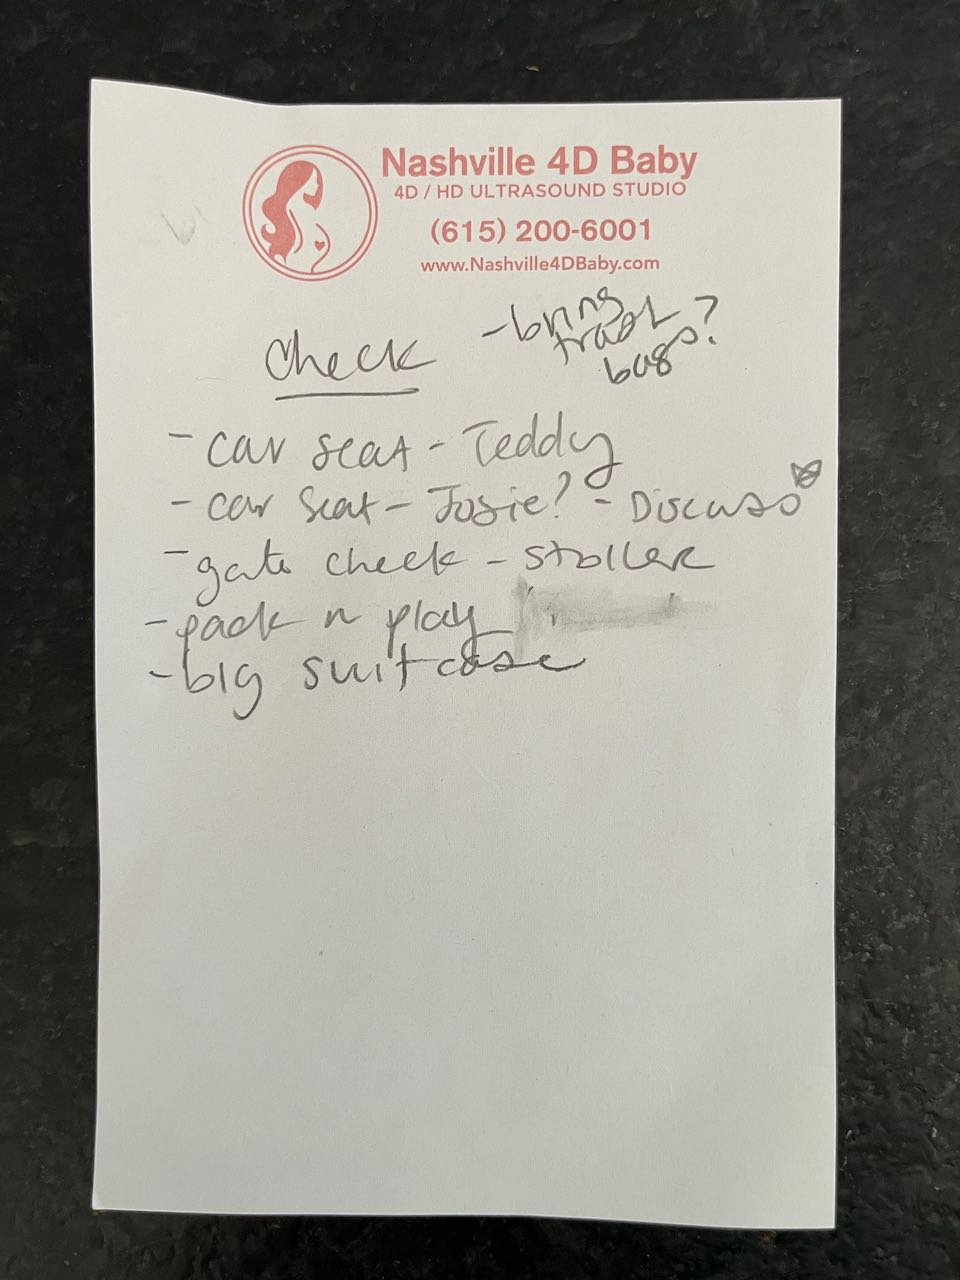 Nashville 4D Baby
4D / HD ULTRASOUND STUDIO
(615) 200-6001
www.Nashville4DBaby.com
Check
- bring
trash
bags?
- car seat - Teddy
- car seat - Josie? - Discuss
- gate check - stoller
- pack n play
- big suitcase